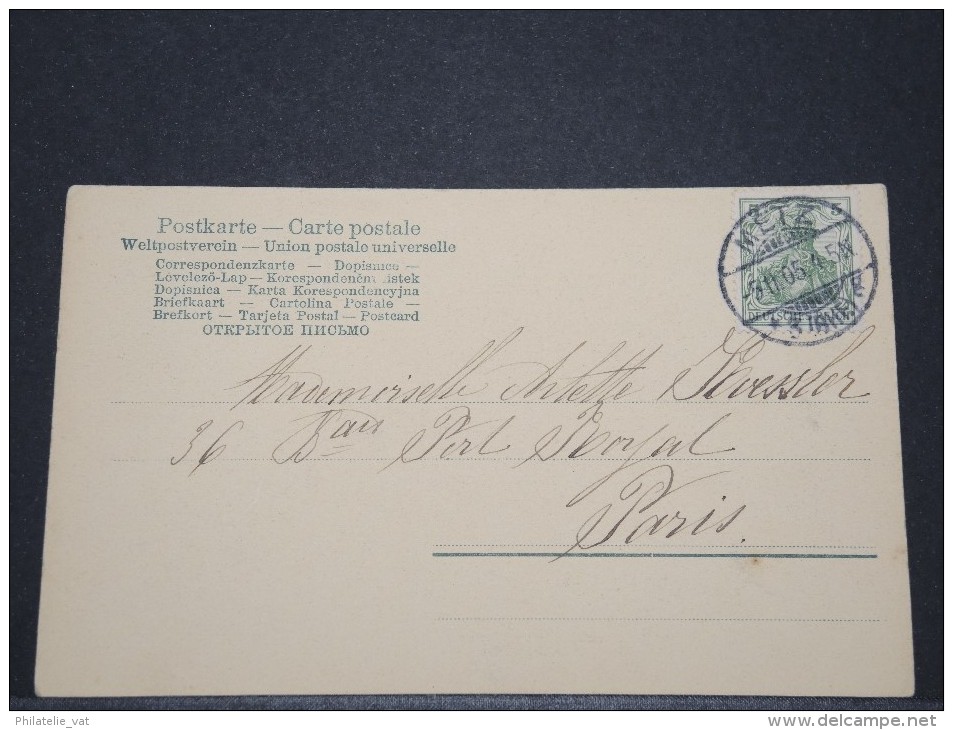 Postkarte — Carte postale
Weltpostverein — Union postale universelle
Correspondenzkarte — Dopisnice —
Levelező-Lap — Korespondenčni listek
Dopisnica — Karta Korespondencyjna
Briefkaart — Cartolina Postale —
Brefkort — Tarjeta Postal — Postcard
ОТКРЫТОЕ ПИСЬМО
5 5
METZ
05.4-5N
DEUTSCHES REICH
Mademoiselle Arlette
36 Bard Port Royal
Paris.
Philatelie_vat
delcampe.net